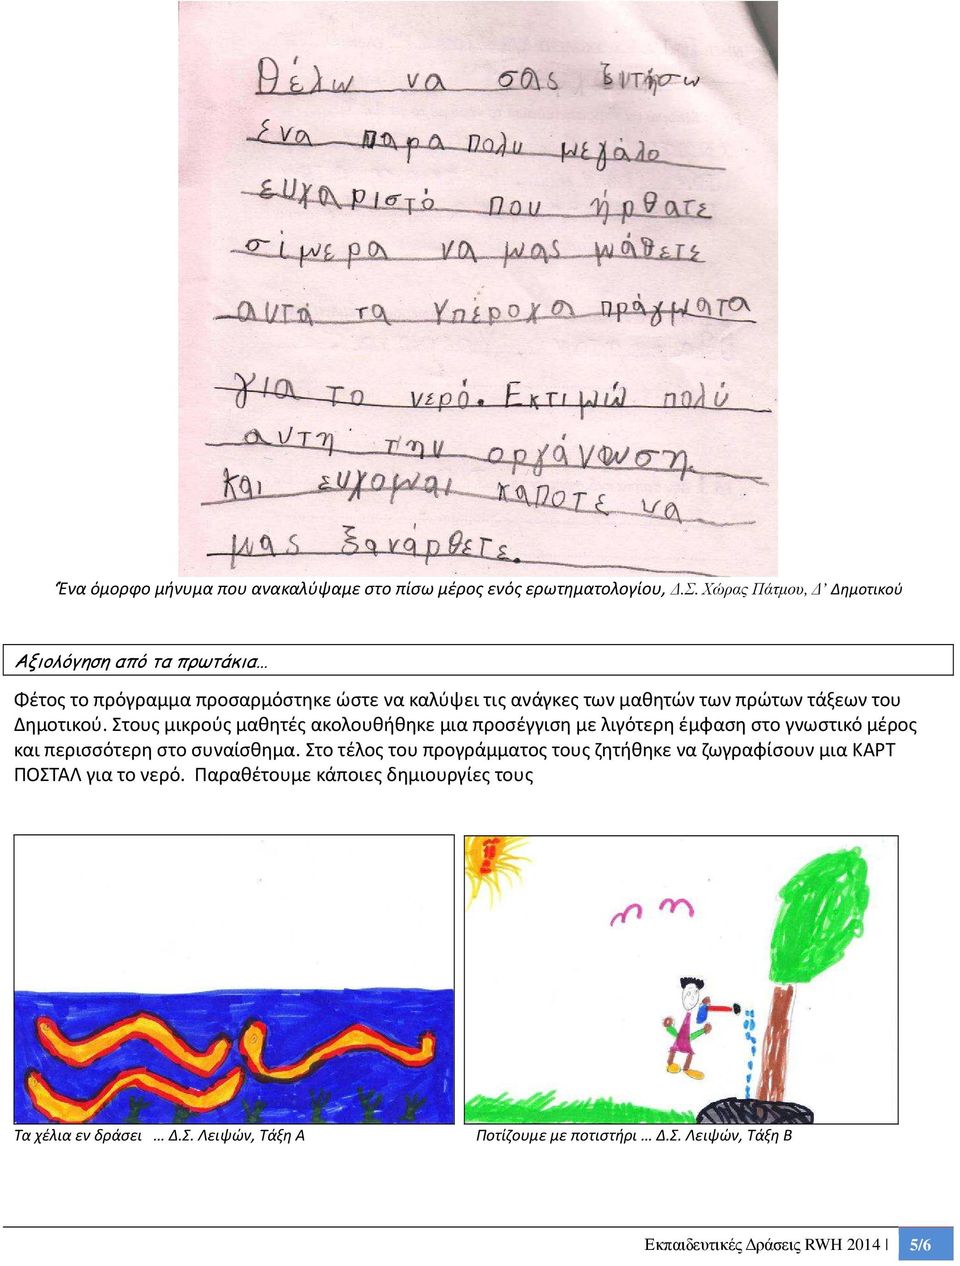 Θέλω να σας ξητήσω
ενα παρα πολυ μεγάλο
ευχαριστό που ήρθατε
σίμερα να μας μάθετε
αυτά τα Υπέροχα πράγματα
για το νερό. Εκτιμώ πολύ
αυτη την οργάνωση
και ευχομαι καποτε να
μας ξανάρθετε.
Ένα όμορφο μήνυμα που ανακαλύψαμε στο πίσω μέρος ενός ερωτηματολογίου, Δ.Σ. Χώρας Πάτμου, Δ’ Δημοτικού
Αξιολόγηση από τα πρωτάκια...
Φέτος το πρόγραμμα προσαρμόστηκε ώστε να καλύψει τις ανάγκες των μαθητών των πρώτων τάξεων του
Δημοτικού. Στους μικρούς μαθητές ακολουθήθηκε μια προσέγγιση με λιγότερη έμφαση στο γνωστικό μέρος
και περισσότερη στο συναίσθημα. Στο τέλος του προγράμματος τους ζητήθηκε να ζωγραφίσουν μια ΚΑΡΤ
ΠΟΣΤΑΛ για το νερό. Παραθέτουμε κάποιες δημιουργίες τους
Τα χέλια εν δράσει ... Δ.Σ. Λειψών, Τάξη Α
Ποτίζουμε με ποτιστήρι ... Δ.Σ. Λειψών, Τάξη Β
Εκπαιδευτικές Δράσεις RWH 2014 | 5/6